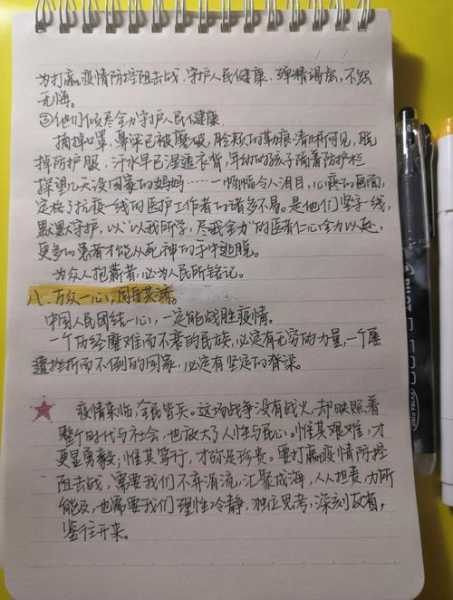 为打赢疫情防控阻击战、守护人民健康,殚精竭虑,不怨
无悔。
③他们倾尽全力守护人民健康
摘掉口罩,鼻梁已被磨破,脸颊的勒痕清晰可见,脱
掉防护服,汗水早已浸透衣背,年幼的孩子隔着防护栏
探望几天没回家的妈妈……一幅幅令人泪目,心疼的画面,
定格了抗疫一线的医护工作者的诸多不易。是他们坚守一线,
默默守护,以"以我所学,尽我全力"的医者仁心全力以赴,
更多的患者才能从死神的手中逃脱。
为众人抱薪者,必为人民所铭记。
八、万众一心,同舟共济。
中国人民团结一心,一定能战胜疫情。
一个历经磨难而不衰的民族,必定有无穷的力量,一个屡
遭挫折而不倒的国家,必定有坚定的脊梁。
疫情来临,全民皆兵。这场战争没有战火,却映照着
整个时代与社会,也放大了人性与民心。惟其艰难,才
更显勇毅;惟其笃行,才弥足珍贵。要打赢疫情防控
阻击战,需要我们不弃涓流,汇聚成海,人人担责,力所
能及,也需要我们理性冷静,独立思考,深刻
鉴往开来。